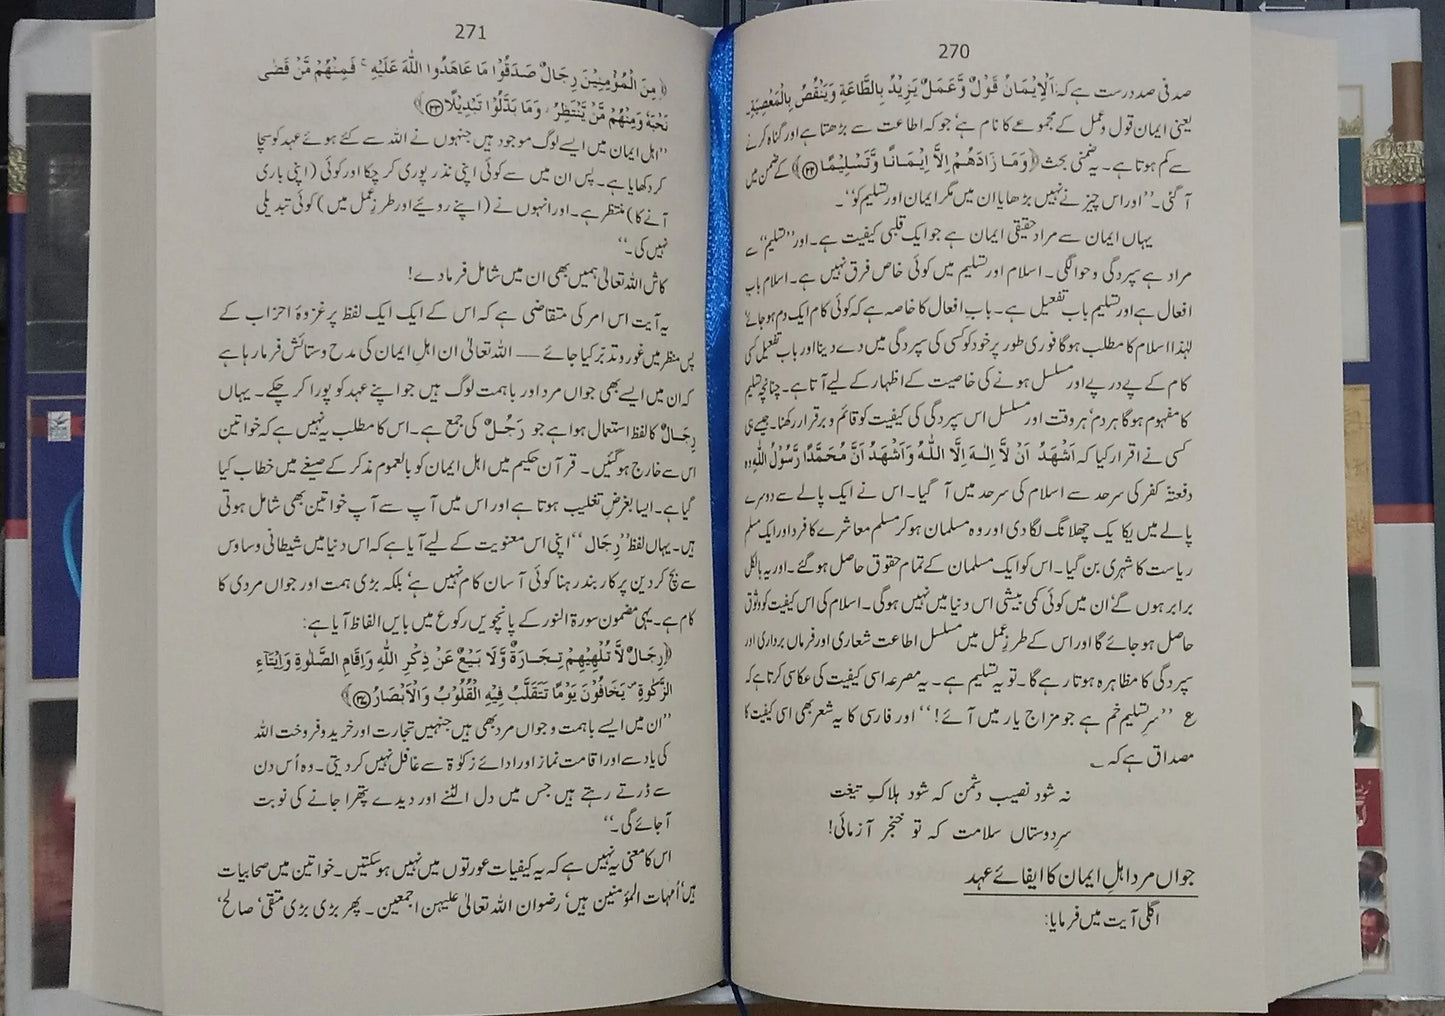 270
صد فی صد درست ہے کہ: اَلْاِیْمَانُ قَوْلٌ وَّعَمَلٌ یَزِیْدُ بِالطَّاعَةِ وَیَنْقُصُ بِالْمَعْصِیَةِ.
یعنی ایمان قول و عمل کے مجموعے کا نام ہے‘ جو کہ اطاعت سے بڑھتا ہے اور گناہ کرنے
سے کم ہوتا ہے۔ یہ ضمنی بحث ﴿وَمَا زَادَهُمْ اِلَّا اِیْمَانًا وَّتَسْلِیْمًا ﴿۲۲﴾﴾ کے ضمن میں
آ گئی۔ ’’اور اس چیز نے نہیں بڑھایا ان میں مگر ایمان اور تسلیم کو‘‘۔
یہاں ایمان سے مراد حقیقی ایمان ہے جو ایک قلبی کیفیت ہے۔ اور ’’تسلیم‘‘ سے
مراد ہے سپردگی و حوالگی۔ اسلام اور تسلیم میں کوئی خاص فرق نہیں ہے۔ اسلام باب
افعال ہے اور تسلیم باب تفعیل ہے۔ باب افعال کا خاصہ ہے کہ کوئی کام ایک دم ہو جائے‘
لہٰذا اسلام کا مطلب ہو گا فوری طور پر خود کو کسی کی سپردگی میں دے دینا اور باب تفعیل کسی
کام کے پے درپے اور مسلسل ہونے کی خاصیت کے اظہار کے لیے آتا ہے۔ چنانچہ تسلیم
کا مفہوم ہو گا ہر دم‘ ہر وقت اور مسلسل اس سپردگی کی کیفیت کو قائم و برقرار رکھنا۔ جیسے ہی
کسی نے اقرار کیا کہ اَشْهَدُ اَنْ لَّا اِلٰـهَ اِلَّا اللّٰهُ وَاَشْهَدُ اَنَّ مُحَمَّدًا رَّسُوْلُ اللّٰهِ وہ
دفعتہً کفر کی سرحد سے اسلام کی سرحد میں آ گیا۔ اس نے ایک پالے سے دوسرے
پالے میں یکا یک چھلانگ لگا دی اور وہ مسلمان ہو کر مسلم معاشرے کا فرد اور ایک مسلم
ریاست کا شہری بن گیا۔ اس کو ایک مسلمان کے تمام حقوق حاصل ہو گئے۔ اور یہ بالکل
برابر ہوں گے‘ ان میں کوئی کمی بیشی اس دنیا میں نہیں ہو گی۔ اسلام کی اس کیفیت کو وثوق
حاصل ہو جائے گا اور اس کے طرزِ عمل میں مسلسل اطاعت شعاری اور فرماں برداری اور
سپردگی کا مظاہرہ ہوتا رہے گا۔ تو یہ تسلیم ہے۔ یہ مصرعہ اسی کیفیت کی عکاسی کرتا ہے کہ
ع ’’سرِ تسلیم خم ہے جو مزاجِ یار میں آئے!‘‘ اور فارسی کا یہ شعر بھی اسی کیفیت کا
مصداق ہے کہ ؂
نہ شود نصیب دشمن کہ شود ہلاکِ تیغت
سرِ دوستاں سلامت کہ تو خنجر آزمائی!
جواں مرد اہلِ ایمان کا ایفائے عہد
اگلی آیت میں فرمایا:
271
﴿مِنَ الْمُؤْمِنِیْنَ رِجَالٌ صَدَقُوْا مَا عَاهَدُوا اللّٰهَ عَلَیْهِ ۚ فَمِنْهُمْ مَّنْ قَضٰی
نَحْبَهٗ وَمِنْهُمْ مَّنْ یَّنْتَظِرُ ۖ وَمَا بَدَّلُوْا تَبْدِیْلًا ﴿۲۳﴾﴾
’’اہل ایمان میں ایسے لوگ موجود ہیں جنہوں نے اللہ سے کئے ہوئے عہد کو سچا
کر دکھایا ہے۔ پس ان میں سے کوئی اپنی نذر پوری کر چکا اور کوئی (اپنی باری
آنے کا) منتظر ہے۔ اور انہوں نے (اپنے رویئے اور طرزِ عمل میں) کوئی تبدیلی
نہیں کی۔‘‘
کاش اللہ تعالیٰ ہمیں بھی ان میں شامل فرما دے!
یہ آیت اس امر کی متقاضی ہے کہ اس کے ایک ایک لفظ پر غزوۂ احزاب کے
پس منظر میں غور و تدبر کیا جائے — اللہ تعالیٰ ان اہلِ ایمان کی مدح و ستائش فرما رہا ہے
کہ ان میں ایسے بھی جواں مرد اور باہمت لوگ ہیں جو اپنے عہد کو پورا کر چکے۔ یہاں
رِجَالٌ کا لفظ استعمال ہوا ہے جو رَجُلٌ کی جمع ہے۔ اس کا مطلب یہ نہیں ہے کہ خواتین
اس سے خارج ہو گئیں۔ قرآن حکیم میں اہل ایمان کو بالعموم مذکر کے صیغے میں خطاب کیا
گیا ہے۔ ایسا بغرضِ تغلیب ہوتا ہے اور اس میں آپ سے آپ خواتین بھی شامل ہوتی
ہیں۔ یہاں لفظ ’’رِجَال‘‘ اپنی اس معنویت کے لیے آیا ہے کہ اس دنیا میں شیطانی وساوس
سے بچ کر دین پر کاربند رہنا کوئی آسان کام نہیں ہے‘ بلکہ بڑی ہمت اور جواں مردی کا
کام ہے۔ یہی مضمون سورۃ النور کے پانچویں رکوع میں بایں الفاظ آیا ہے:
﴿رِجَالٌ لَّا تُلْهِیْهِمْ تِجَارَةٌ وَّلَا بَیْعٌ عَنْ ذِكْرِ اللّٰهِ وَاِقَامِ الصَّلٰوةِ وَاِیْتَآءِ
الزَّكٰوةِ ۙ یَخَافُوْنَ یَوْمًا تَتَقَلَّبُ فِیْهِ الْقُلُوْبُ وَالْاَبْصَارُ ﴿۳۷﴾﴾
’’ان میں ایسے باہمت و جواں مرد بھی ہیں جنہیں تجارت اور خرید و فروخت اللہ
کی یاد سے اور اقامت نماز اور ادائے زکوٰۃ سے غافل نہیں کر دیتی۔ وہ اُس دن
سے ڈرتے رہتے ہیں جس میں دل الٹنے اور دیدے پتھرا جانے کی نوبت
آ جائے گی۔‘‘
اس کا معنی یہ نہیں ہے کہ یہ کیفیات عورتوں میں نہیں ہو سکتیں۔ خواتین میں صحابیات
ہیں‘ اُمہات المؤمنین ہیں‘ رضوان اللہ تعالیٰ علیہن اجمعین۔ پھر بڑی بڑی متقی‘ صالح‘